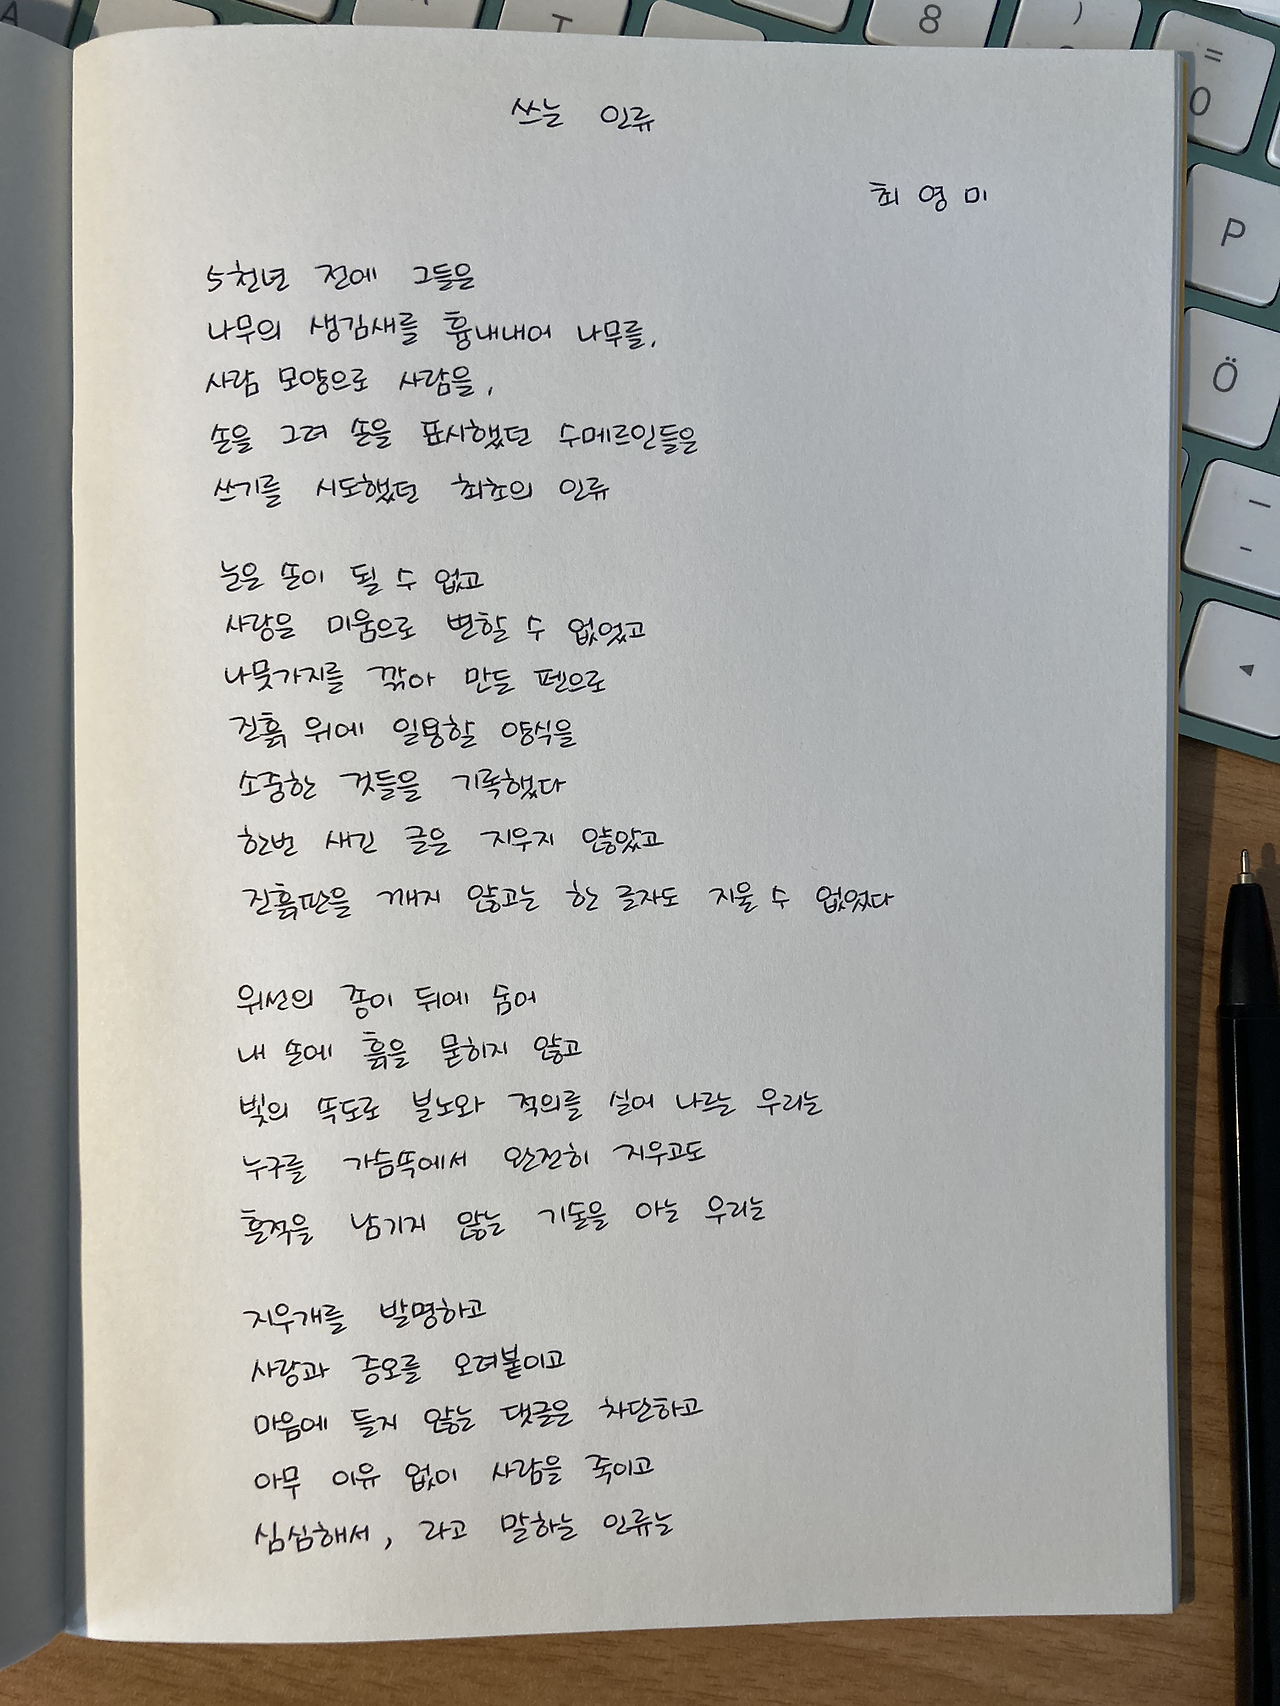 A
T
8
)
=
0
P
Ö
쓰는 인류
최영미
5천년 전에 그들은
나무의 생김새를 흉내내어 나무를,
사람 모양으로 사람을,
손을 그려 손을 표시했던 수메르인들은
쓰기를 시도했던 최초의 인류
눈은 손이 될 수 없고
사랑을 미움으로 변할 수 없었고
나뭇가지를 깎아 만든 펜으로
진흙 위에 일용할 양식을
소중한 것들을 기록했다
한번 새긴 글은 지우지 않았고
진흙판을 깨지 않고는 한 글자도 지울 수 없었다
위선의 종이 뒤에 숨어
내 손에 흙을 묻히지 않고
빛의 속도로 분노와 적의를 실어 나르는 우리는
누구를 가슴속에서 완전히 지우고도
흔적을 남기지 않는 기술을 아는 우리는
지우개를 발명하고
사랑과 증오를 오려붙이고
마음에 들지 않는 댓글은 차단하고
아무 이유 없이 사람을 죽이고
심심해서, 라고 말하는 인류는